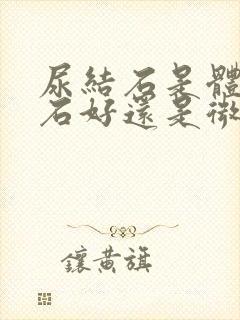 尿結石是體
石好還是微
鑲黃旗